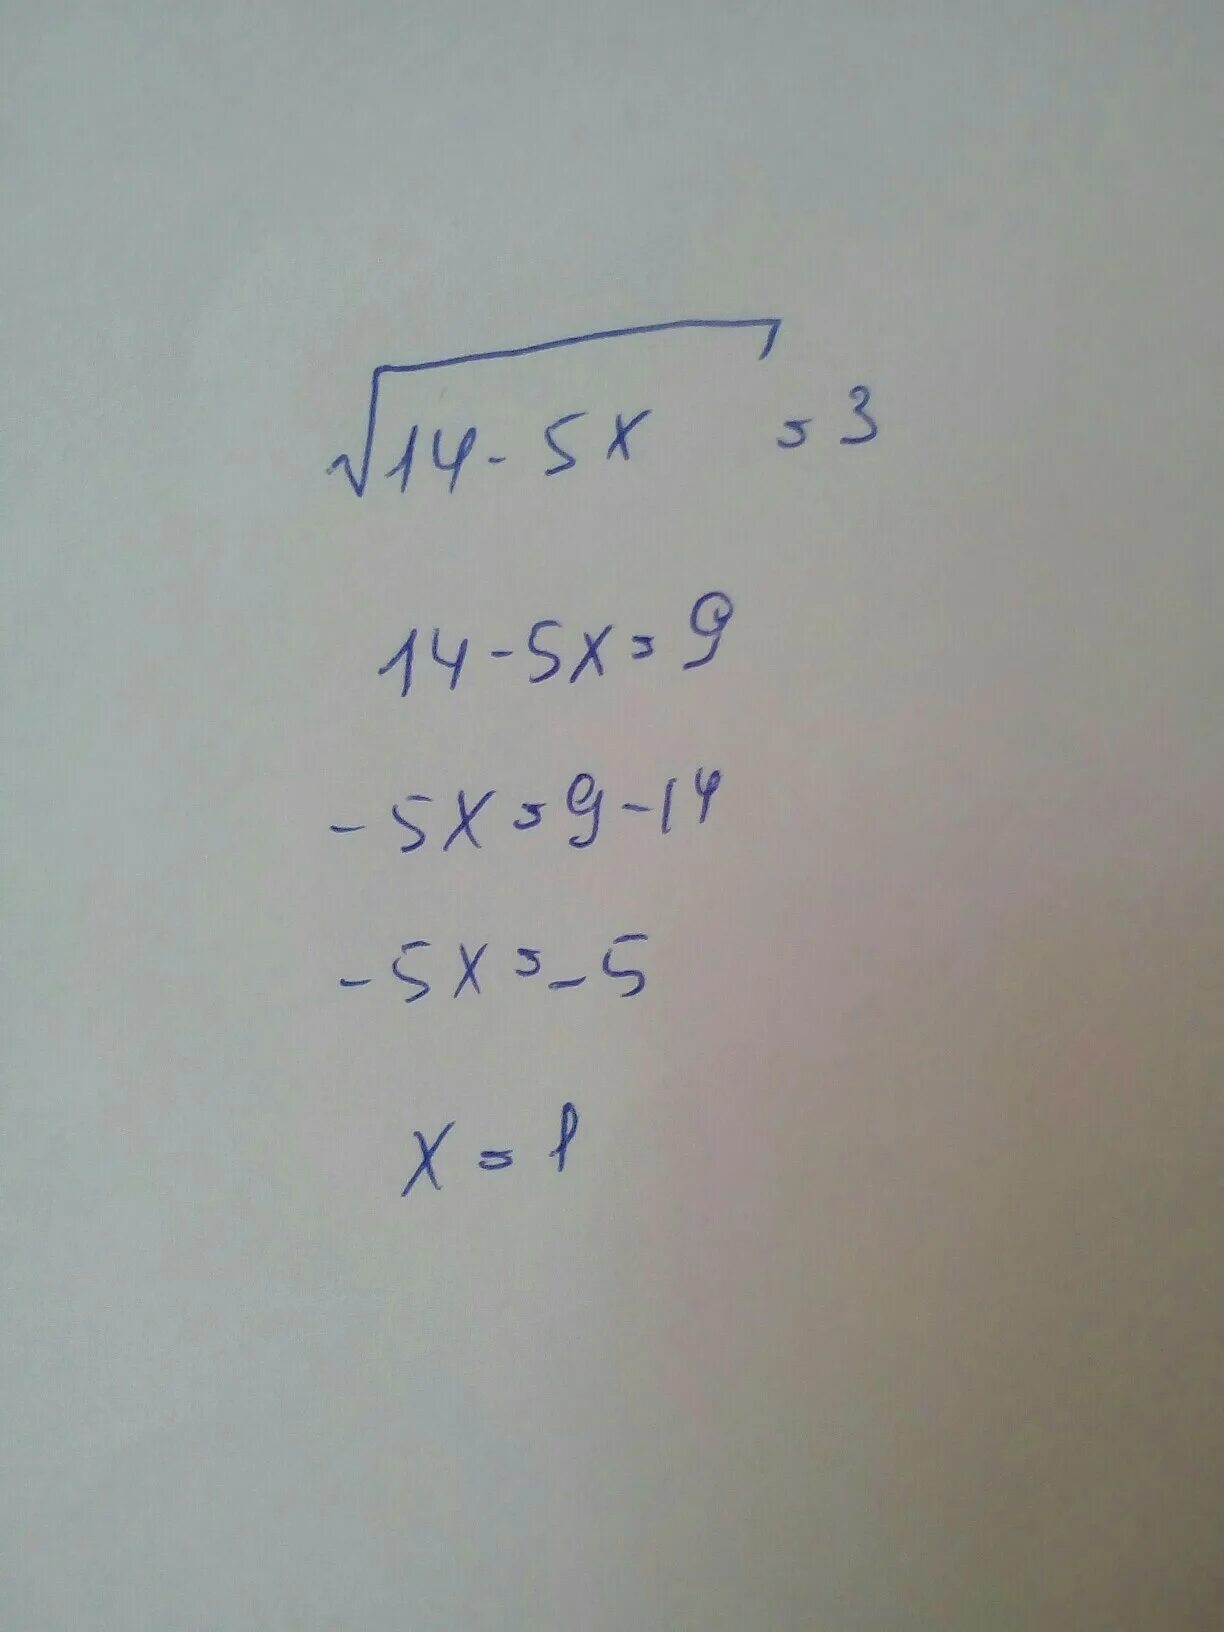 √14-5x = 3
14-5x=9
-5x=9-14
-5x=-5
x=1